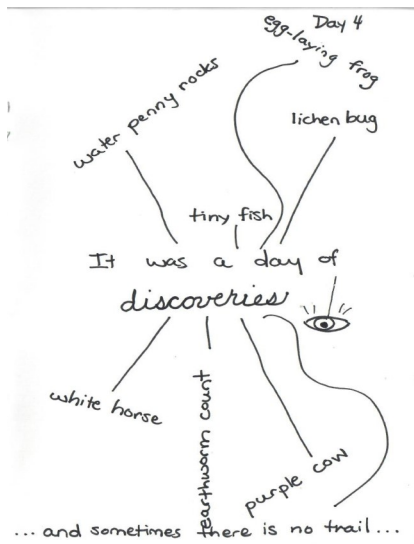 Day 4
egg-laying frog
water penny rocks
lichen bug
tiny fish
It was a day of
discoveries
white horse
earthworm count
purple cow
... and sometimes there is no trail...